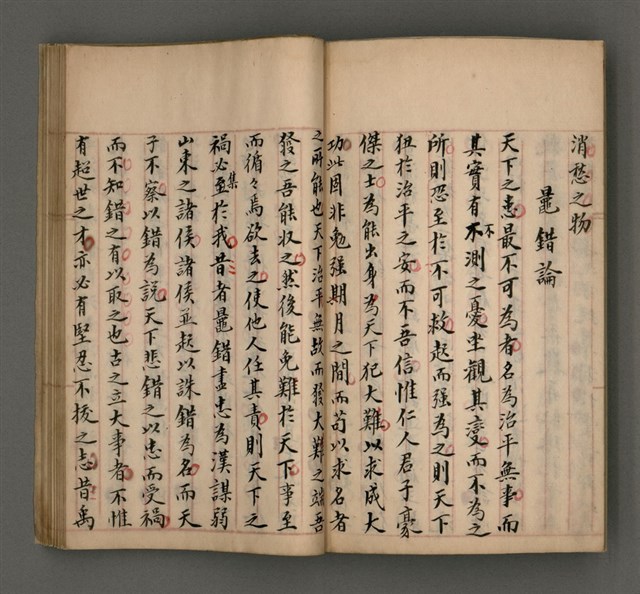 消愁之物
鼂錯論
天下之患最不可為者名為治平無事而
其實有不測之憂坐觀其變而不為之
所則恐至於不可救起而强為之則天下
狃於治平之安而不吾信惟仁人君子豪
傑之士為能出身為天下犯大難以求成大
功此固非勉强期月之間而苟以求名者
之所能也天下治平無故而發大難之端吾
發之吾能收之然後能免難於天下事至
而循々焉欲去之使他人任其責則天下之
禍必集於我昔者鼂錯盡忠為漢謀弱
山東之諸侯諸侯並起以誅錯為名而天
子不察以錯為說天下悲錯之以忠而受禍
而不知錯之有以取之也古之立大事者不惟
有超世之才亦必有堅忍不拔之志昔禹